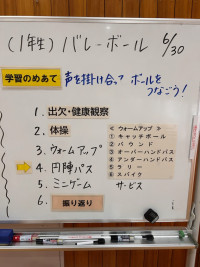 (1年生) バレーボール 6/30
学習のめあて 声を掛け合って ボールを
つなごう!
1. 出欠・健康観察
2. 体操
3. ウォームアップ
4. 円陣パス
5. ミニゲーム
6. 振り返り
≪ウォームアップ≫
① キャッチボール
② バウンド
③ オーバーハンドパス
④ アンダーハンドパス
⑤ ラリー
⑥ スパイク
サービス